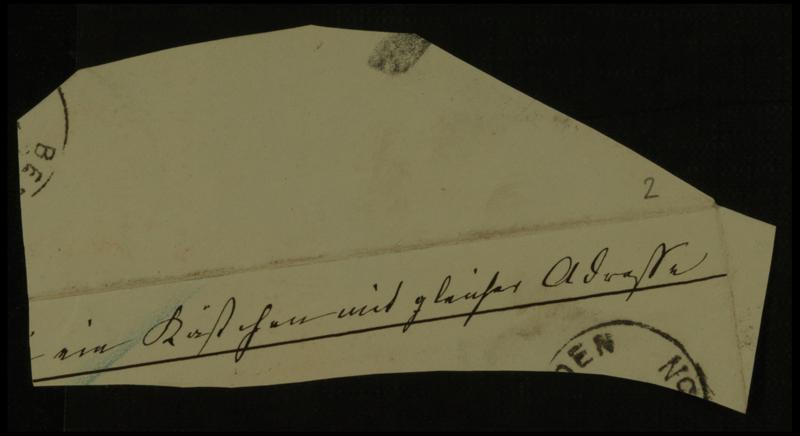 BE
2
ein Kästchen mit gleicher Adresse
DEN NO